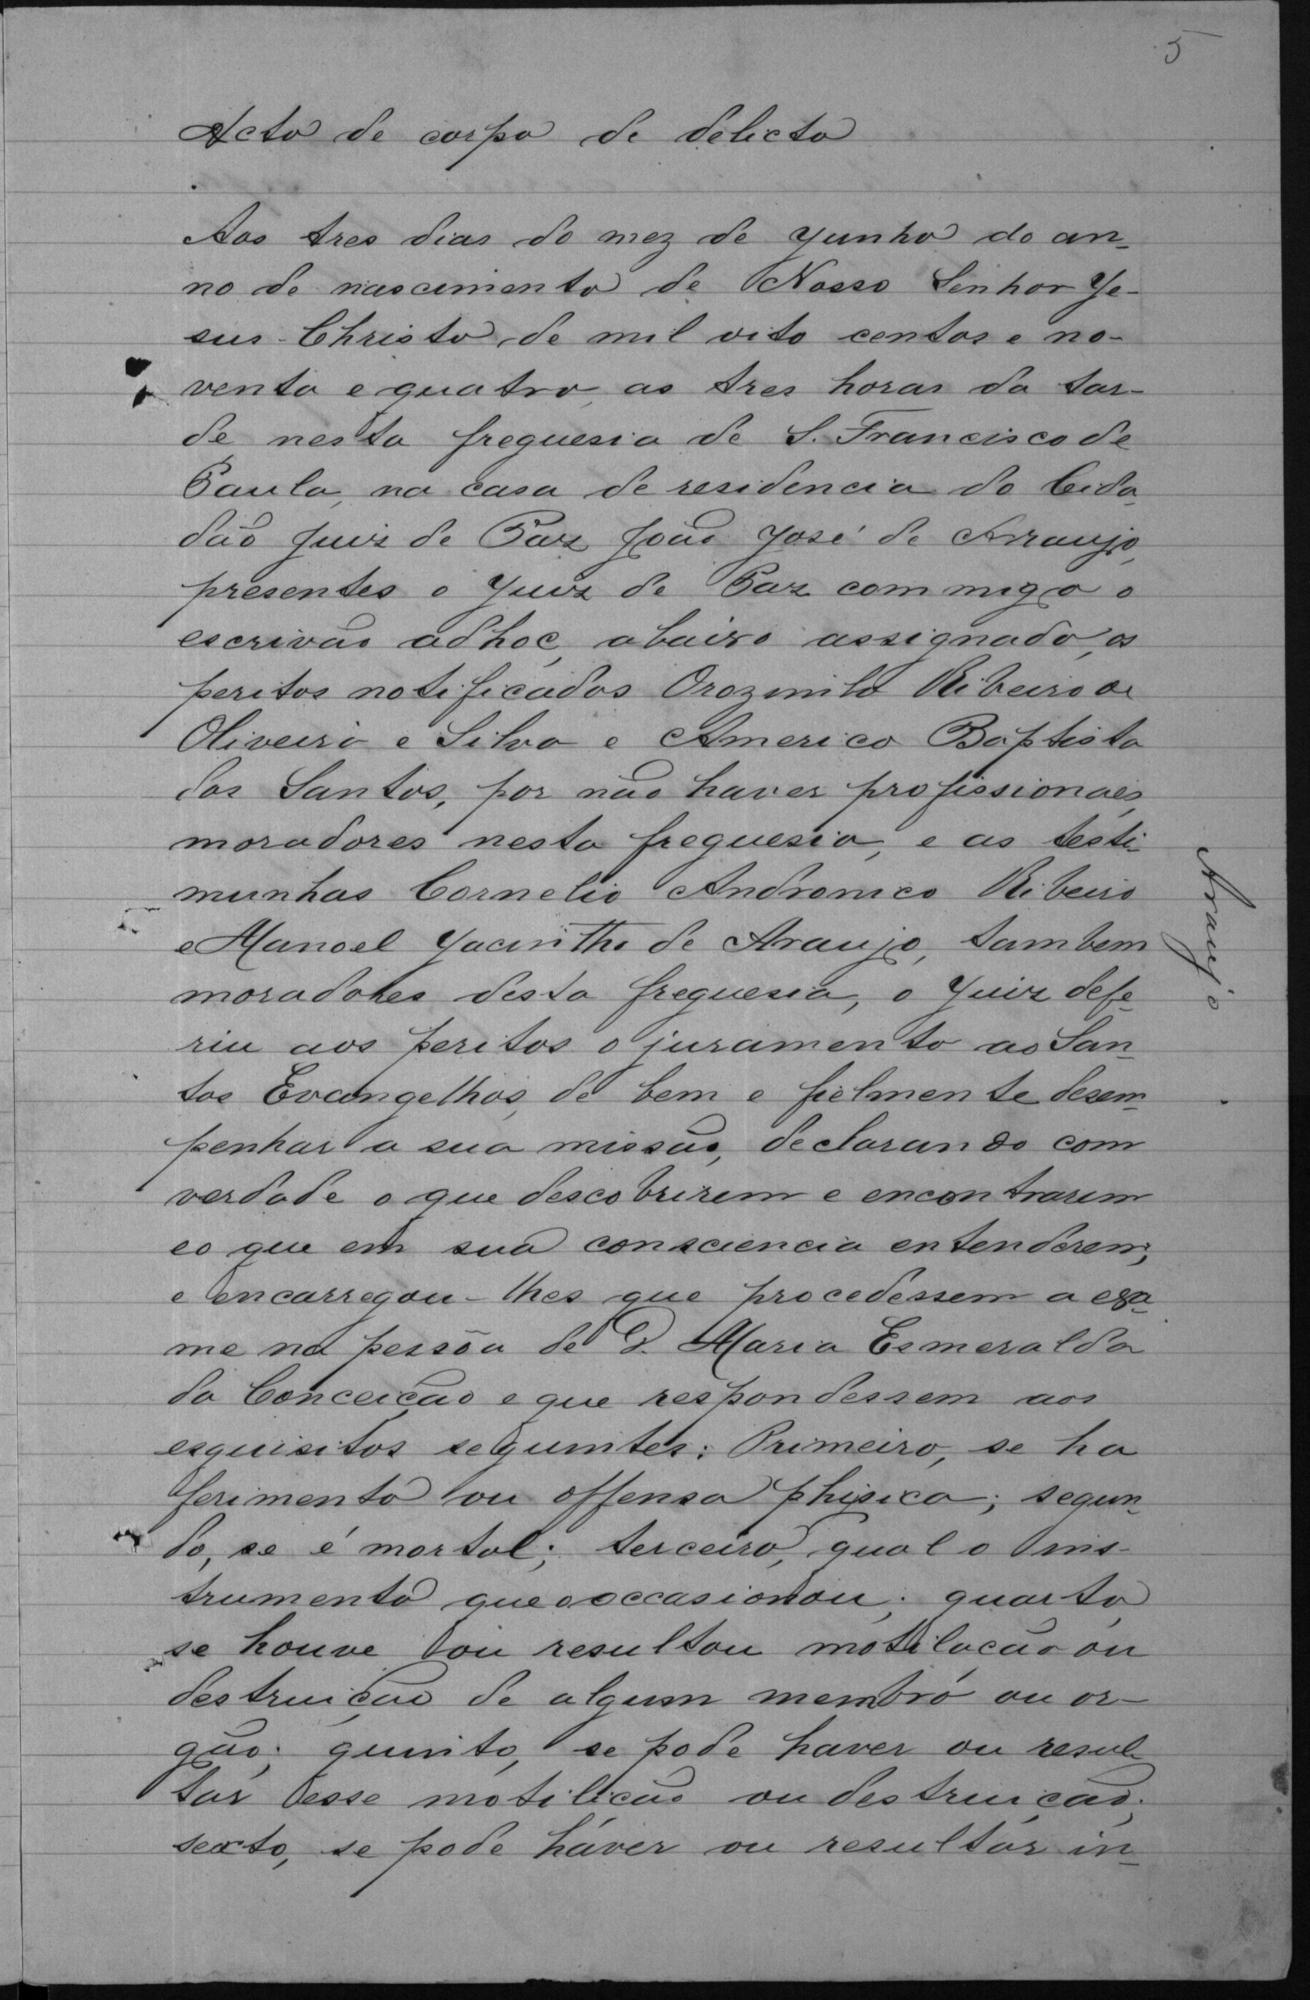 5
Acto de corpo de delicto
Aos tres dias do mez de Junho do an-
no de nascimento de Nosso Senhor Je-
sus Christo de mil oito centos e no-
venta e quatro, as tres horas da tar-
de nesta freguesia de S. Francisco de
Paula, na casa de residencia do Cida-
dão Juiz de Paz João José de Araujo,
presentes o Juiz de Paz commigo o
escrivão adhoc, abaixo assignado, os
peritos notificados Orozimbo Ribeiro de
Oliveira e Silva e Americo Baptista
dos Santos, por não haver profissionaes,
moradores nesta freguesia, e as testi-
munhas Cornelio Andronico Ribeiro
e Manoel Jacintho de Araujo, tambem
moradores desta freguesia, o Juiz defe-
riu aos peritos o juramento ao San-
tos Evangelhos, de bem e fielmente desem-
penhar a sua missão, declarando com
verdade o que descobrirem e encontrarem
e o que em sua consciencia entenderem;
e encarregou-lhes que procedessem a exa-
me na pessõa de D. Maria Esmeralda
da Conceição e que respondessem aos
esquisitos seguintes: Primeiro, se ha
ferimento ou offensa phisica; segun-
do, se é mortal; terceiro, qual o ins-
trumento que o occasionou; quarto,
se houve ou resultou motilação ou
destruição de algum membro ou or-
gão; quinto, se pode haver ou resul-
tar esse motilicão ou destruição;
sexto, se pode haver ou resultar in-
Araujo